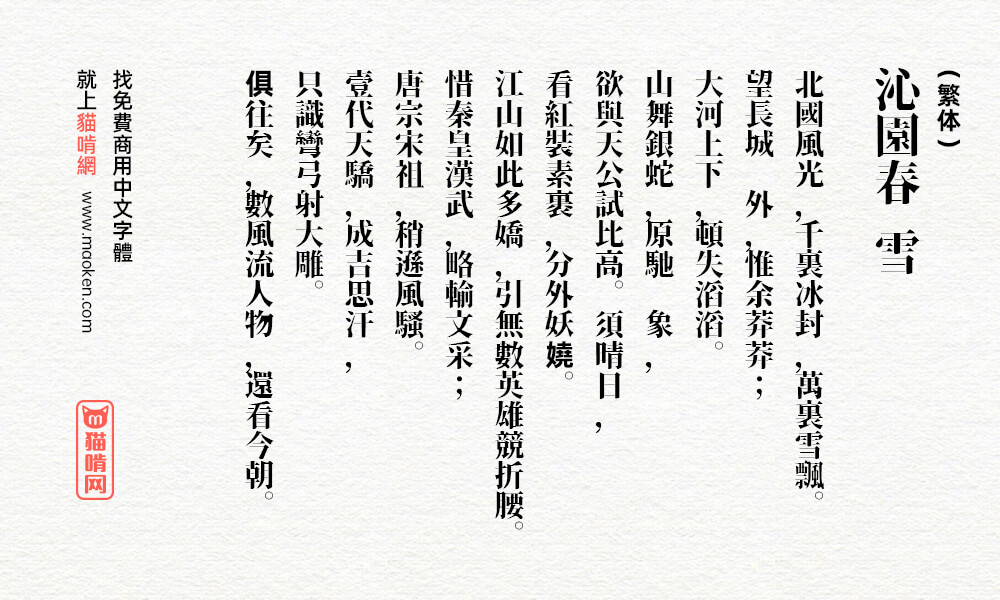 (繁体)
沁園春 雪
北國風光,千裏冰封,萬裏雪飄。
望長城 外,惟余莽莽;
大河上下,頓失滔滔。
山舞銀蛇,原馳 象,
欲與天公試比高。須晴日,
看紅裝素裹,分外妖嬈。
江山如此多嬌,引無數英雄競折腰。
惜秦皇漢武,略輸文采;
唐宗宋祖,稍遜風騷。
壹代天驕,成吉思汗,
只識彎弓射大雕。
俱往矣,數風流人物,還看今朝。
找免費商用中文字體
就上貓啃網 www.maoken.com
猫啃网